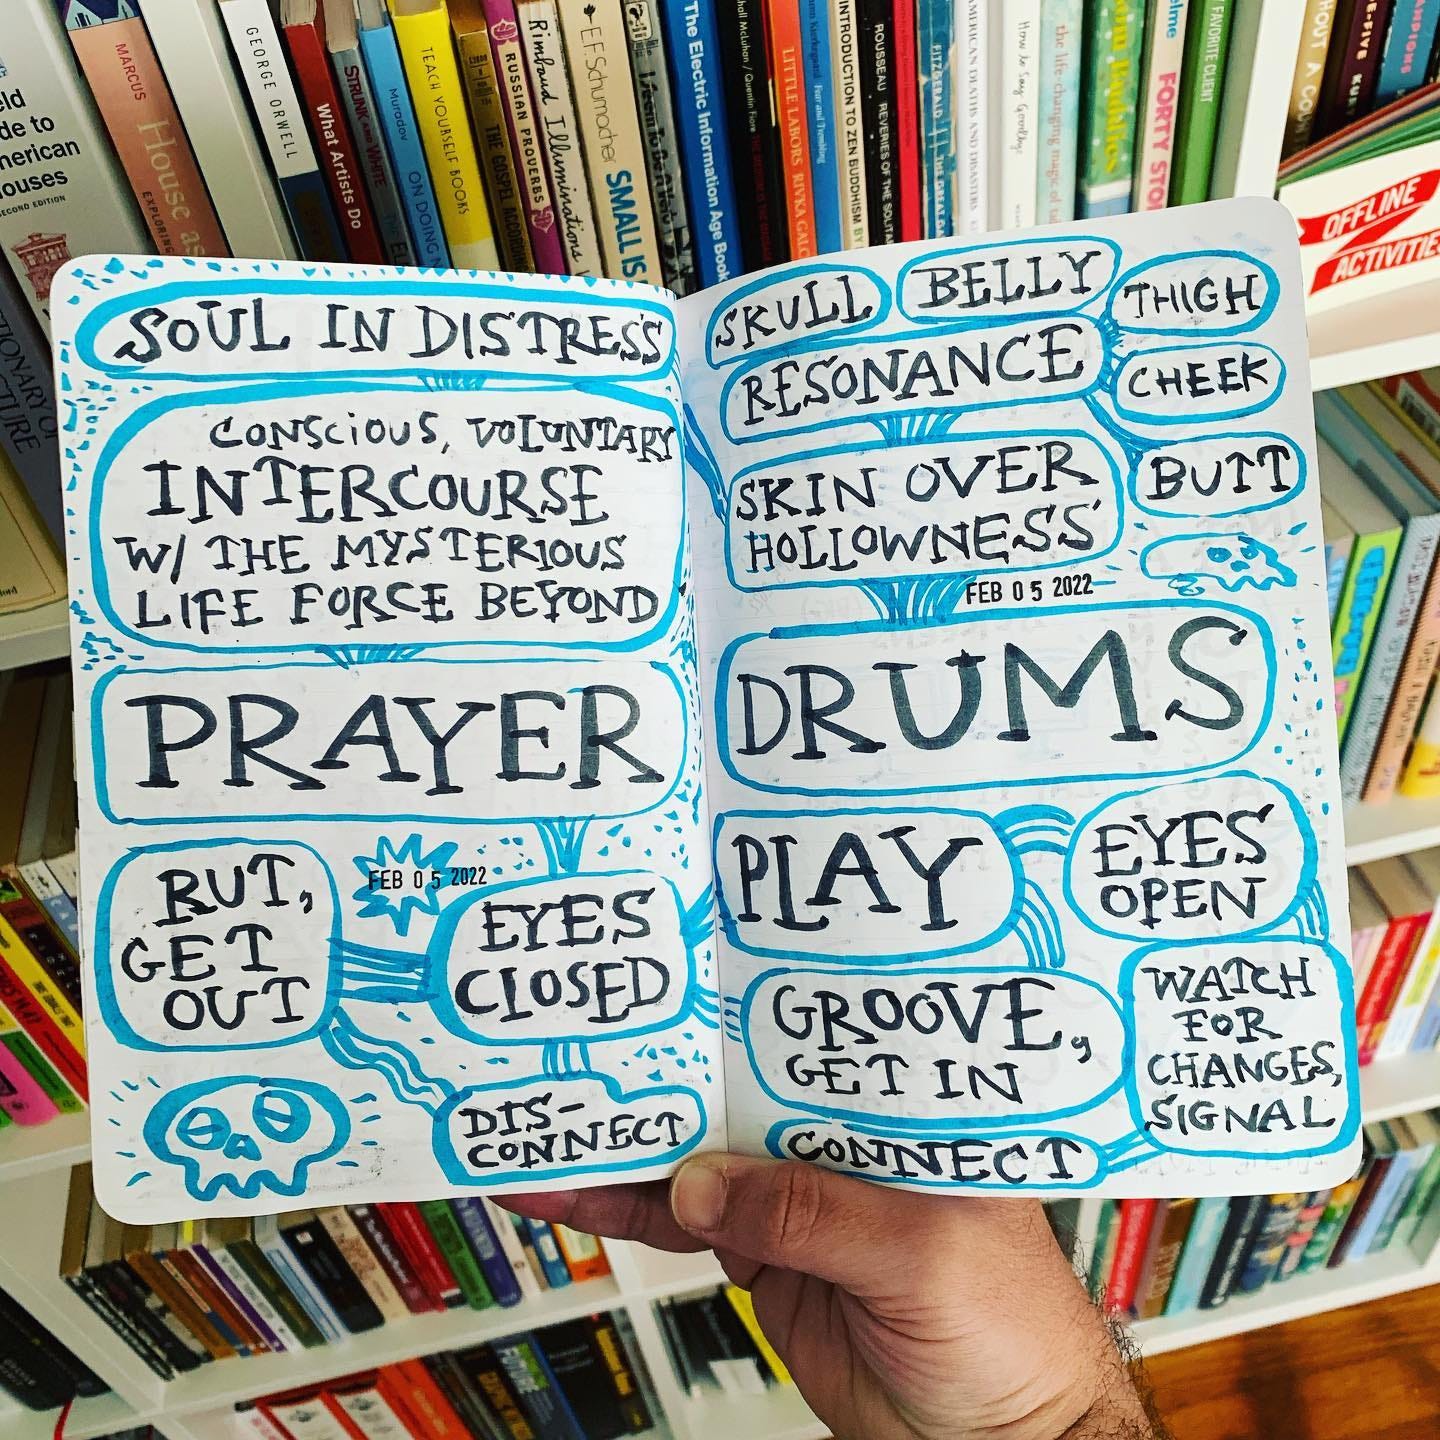 SOUL IN DISTRESS
CONSCIOUS, VOLUNTARY
INTERCOURSE
W/ THE MYSTERIOUS
LIFE FORCE BEYOND
PRAYER
RUT,
GET
OUT
FEB 05 2022
EYES
CLOSED
DIS-
CONNECT
SKULL
BELLY
THIGH
RESONANCE
CHEEK
SKIN OVER
HOLLOWNESS
BUTT
FEB 05 2022
DRUMS
PLAY
EYES
OPEN
GROOVE,
GET IN
WATCH
FOR
CHANGES,
SIGNAL
CONNECT
MARCUS
House as
EXPLORING
GEORGE ORWELL
What Artists Do
STRUNK AND WHITE
Muradov
ON DOING
TEACH YOURSELF BOOKS
THE GOSPEL ACCORDING
RUSSIAN PROVERBS
Rimbaud Illuminations
E.F. Schumacher
SMALL IS
The Electric Information Age Book
Marshall McLuhan / Quentin Fiore
LITTLE LABORS RIVKA GALC
Fear and Trembling
INTRODUCTION TO ZEN BUDDHISM BY
ROUSSEAU REVERIES OF THE SOLITA
FITZGERALD THE GREAT GA
AMERICAN DEATHS AND DISASTERS
How to Say Goodbye
the life-changing magic of
FORTY STO
FAVORITE CLIENT
OFFLINE
ACTIVITIES
SECOND EDITION